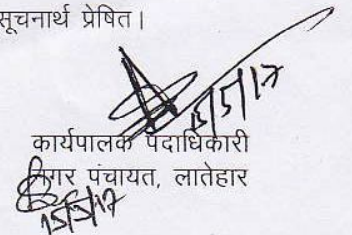 सूचनार्थ प्रेषित।
कार्यपालक पदाधिकारी
नगर पंचायत, लातेहार
15/5/17